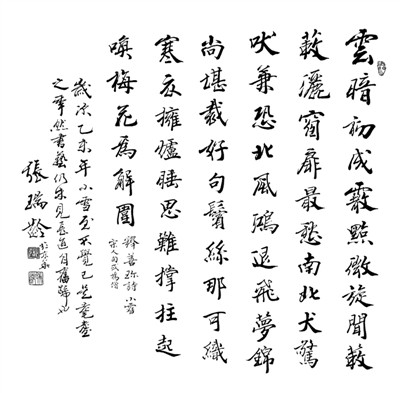 雲暗初成霰點微旋聞蔌
蔌灑窗扉最愁南北犬驚
吠兼恐北風鴻退飛夢錦
尚堪裁好句鬢絲那可織
寒衣擁爐睡思難撑拄起
喚梅花為解圍
釋善珍詩小雪
歲次乙未年小雪至不覺已是耄耋
之年然書藝仍未見長進自
張瑞齡